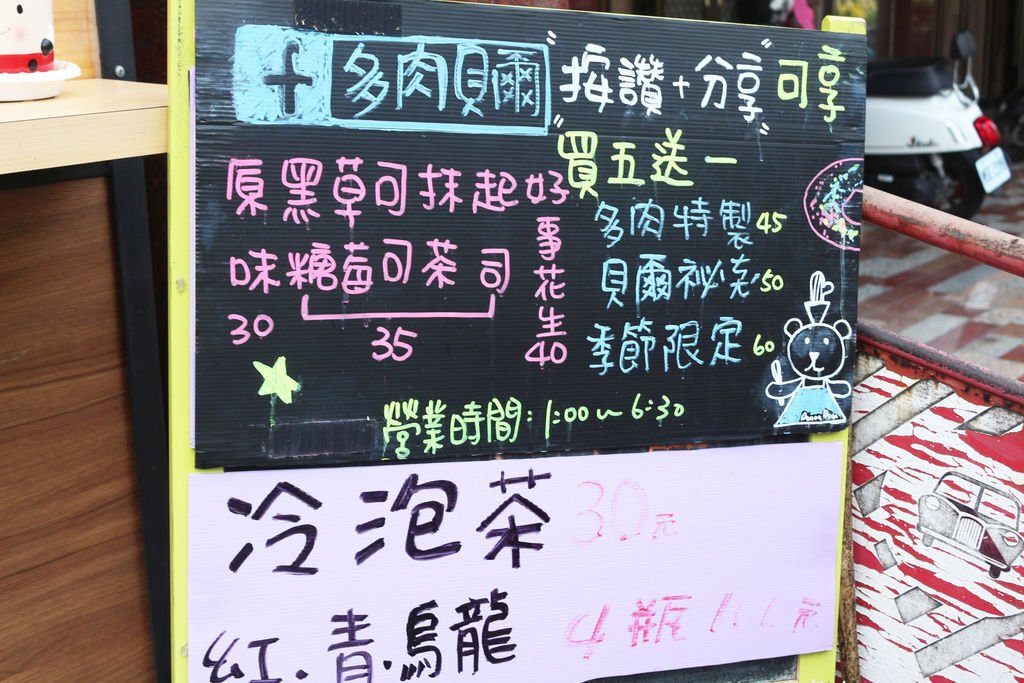 f 多肉貝爾 "按讚+分享"可享
買五送一
原黑草可抹起好
味糖莓可茶司
事花生
30 35 40
多肉特製45
貝爾祕密50
季節限定60
營業時間:1:00~6:30
冷泡茶 30元
紅.青.烏龍 4瓶100元